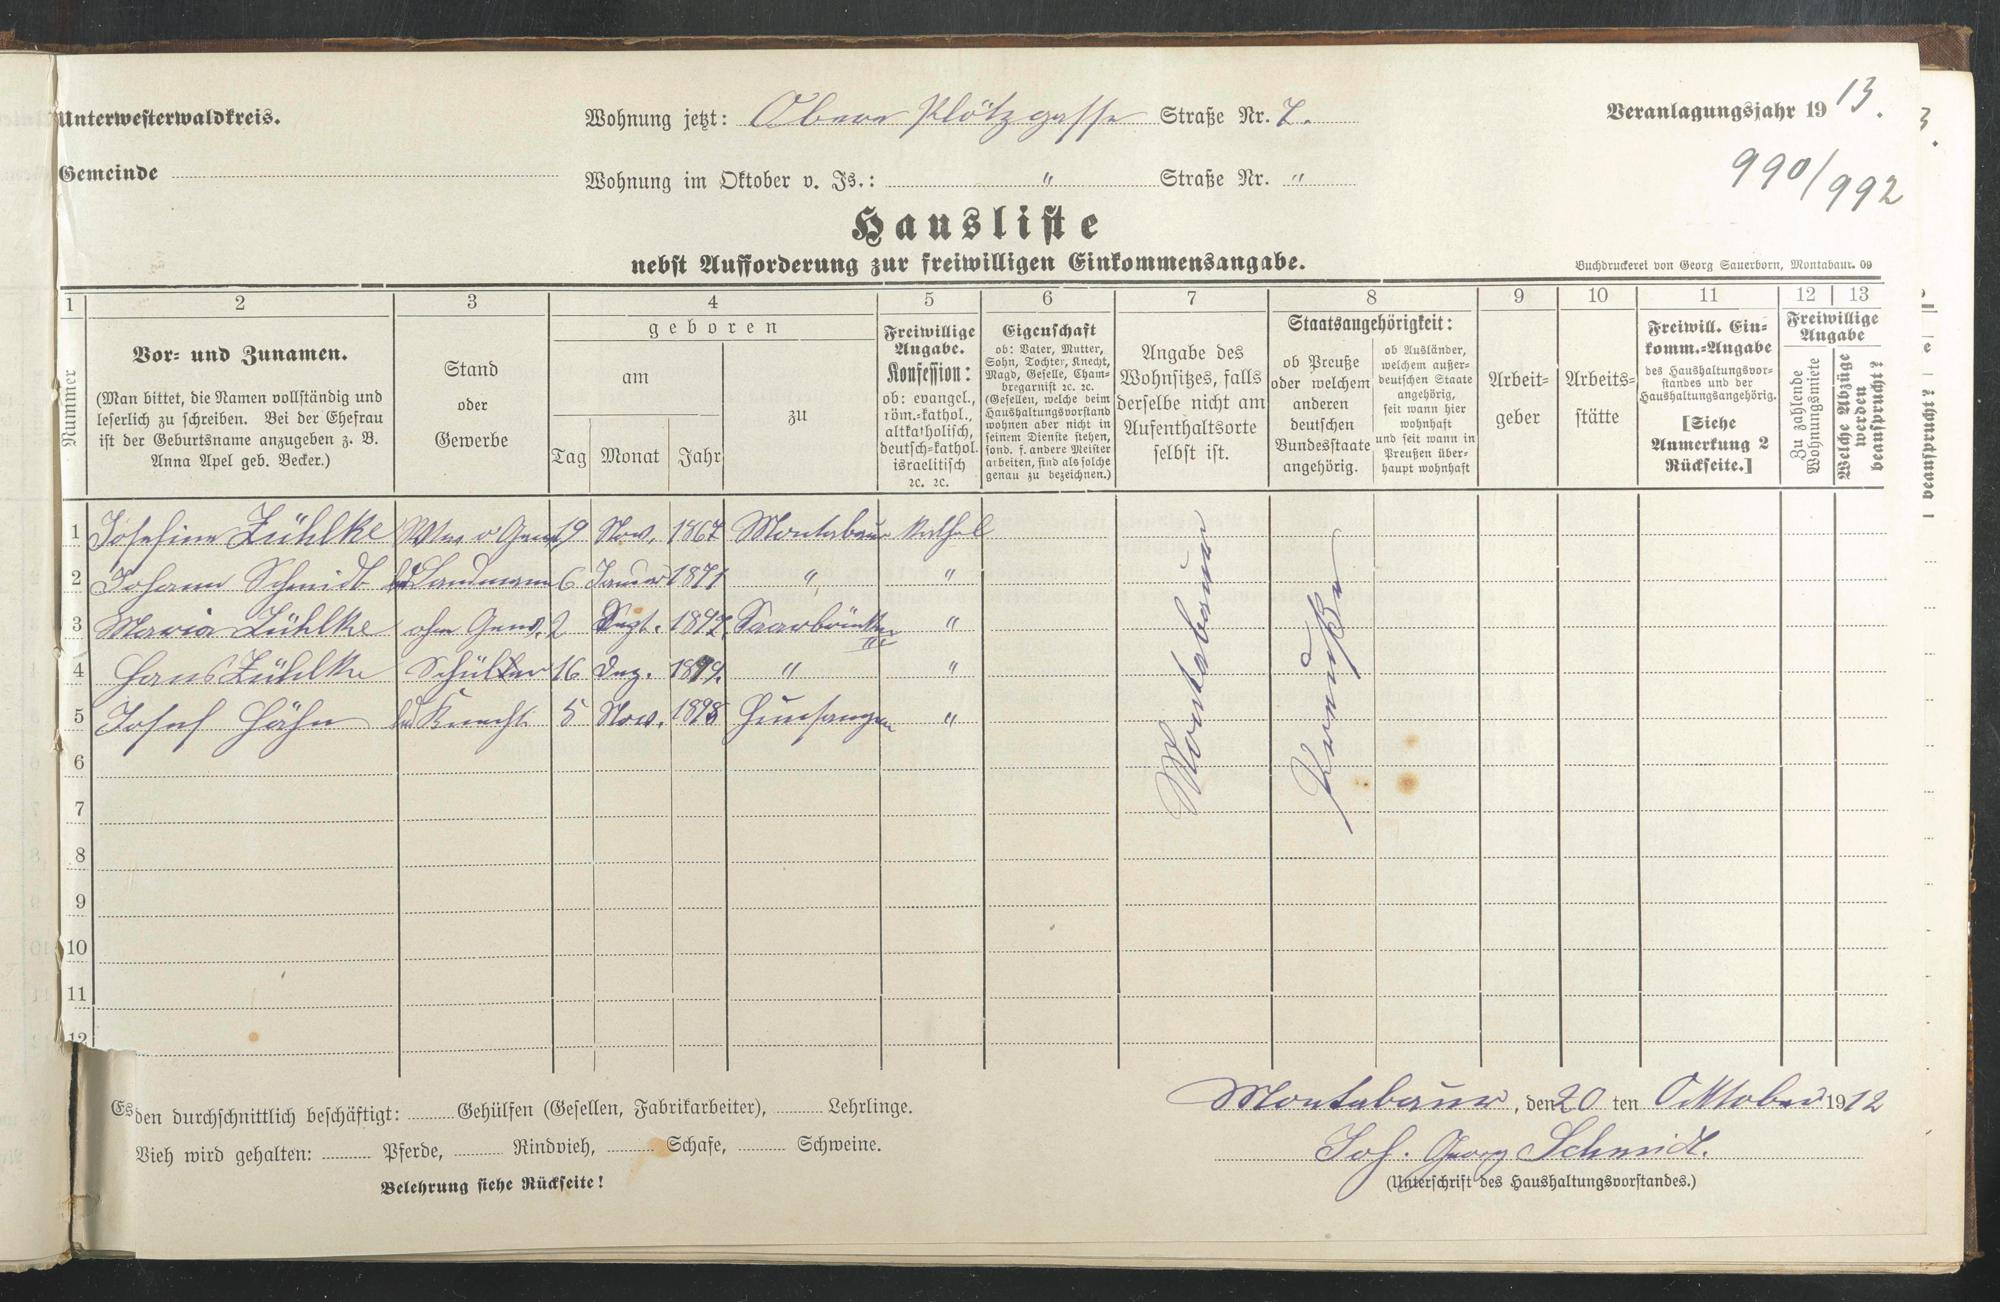 Unterwesterwaldkreis.
Wohnung jetzt: Obere Plötzgasse Straße Nr. 7.
Veranlagungsjahr 1913.
Gemeinde
Wohnung im Oktober v. Js.: " Straße Nr. "
990/992
Hausliste
nebst Aufforderung zur freiwilligen Einkommensangabe.
Buchdruckerei von Georg Sauerborn, Montabaur. 09
1 2 3 4 5 6 7 8 9 10 11 12 13
Nummer
Vor- und Zunamen.
(Man bittet, die Namen vollständig und
leserlich zu schreiben. Bei der Ehefrau
ist der Geburtsname anzugeben z. B.
Anna Apel geb. Becker.)
Stand
oder
Gewerbe
geboren
am
Tag Monat Jahr
zu
Freiwillige
Angabe.
Konfession:
ob: evangel.,
röm.-kathol.,
altkatholisch,
deutsch-kathol.
israelitisch
ꝛc. ꝛc.
Eigenschaft
ob: Vater, Mutter,
Sohn, Tochter, Knecht,
Magd, Geselle, Cham-
bregarnist ꝛc. ꝛc.
(Gesellen, welche beim
Haushaltungsvorstand
wohnen aber nicht in
seinem Dienste stehen,
sond. f. andere Meister
arbeiten, sind als solche
genau zu bezeichnen.)
Angabe des
Wohnsitzes, falls
derselbe nicht am
Aufenthaltsorte
selbst ist.
Staatsangehörigkeit:
ob Preuße
oder welchem
anderen
deutschen
Bundesstaate
angehörig.
ob Ausländer,
welchem außer-
deutschen Staate
angehörig,
seit wann hier
wohnhaft
und seit wann in
Preußen über-
haupt wohnhaft
Arbeit-
geber
Arbeits-
stätte
Freiwill. Ein-
komm.-Angabe
des Haushaltungsvor-
standes und der
Haushaltungsangehörig.
[Siehe
Anmerkung 2
Rückseite.]
Freiwillige
Angabe
Zu zahlende
Wohnungsmiete
Welche Abzüge
werden
beansprucht?
1 Josefine Zühlke Wwe o Gew 19 Nov. 1867 Montabaur kathol
2 Johann Schmidt Landmann 6 Januar 1871 " "
3 Maria Zühlke ohne Gew. 2 Sept. 1897 Saarbrücken "
4 Hans Zühlke Schüler 16 Dez. 1899. " "
5 Josef Hähn Knecht 5 Nov. 1898 Hunsangen "
Montabaur
Preuße
6
7
8
9
10
11
12
Es
den durchschnittlich beschäftigt: Gehülfen (Gesellen, Fabrikarbeiter), Lehrlinge.
Montabaur, den 20 ten Oktober 1912
Vieh wird gehalten: Pferde, Rindvieh, Schafe, Schweine.
Joh. Georg Schmidt.
Belehrung siehe Rückseite!
(Unterschrift des Haushaltungsvorstandes.)